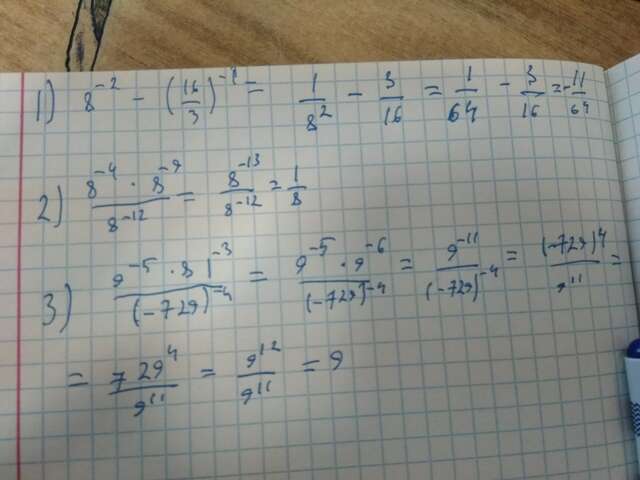 1) 8⁻² − (16/3)⁻¹ = 1/8² − 3/16 = 1/64 − 3/16 = −11/64
2) 8⁻⁴ · 8⁻⁹ / 8⁻¹² = 8⁻¹³ / 8⁻¹² = 1/8
3) 9⁻⁵ · 81⁻³ / (−729)⁻⁴ = 9⁻⁵ · 9⁻⁶ / (−729)⁻⁴ = 9⁻¹¹ / (−729)⁻⁴ = (−729)⁴ / 9¹¹ =
= 729⁴ / 9¹¹ = 9¹² / 9¹¹ = 9